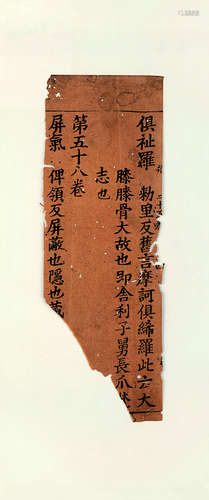 俱祉羅 勑里反舊言摩訶俱絺羅此云大
膝膝骨大故也即舍利子舅長爪
志也
第五十八卷
屏氣 俾領反屏蔽也隱也